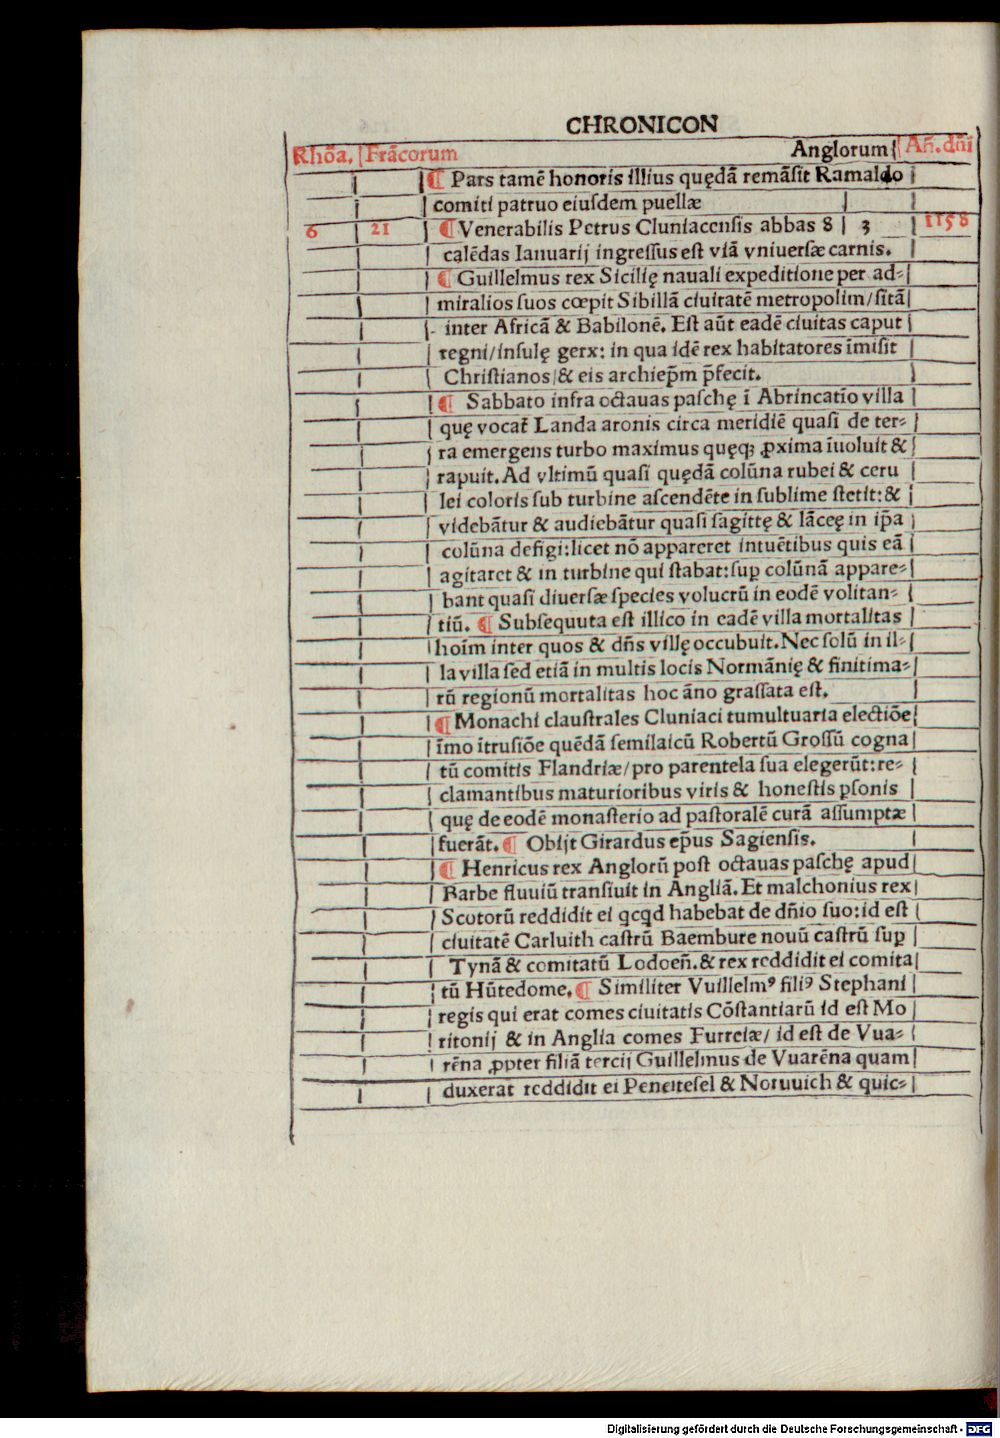 CHRONICON
Rhōa. Frācorum Anglorum Añ. dñi
¶ Pars tamē honoris illius quędā remāsit Ramaldo
comiti patruo eiusdem puellæ
6 21 ¶ Venerabilis Petrus Cluniacensis abbas 8 3 1158
calēdas Ianuarij ingressus est viā vniuersæ carnis.
¶ Guillelmus rex Sicilię nauali expeditione per ad⸗
miralios suos cœpit Sibillā ciuitatē metropolim/sitā
inter Africā & Babilonē. Est aūt eadē ciuitas caput
regni/insulę gerx: in qua idē rex habitatores īmisit
Christianos/& eis archiep̄m p̄fecit.
¶ Sabbato infra octauas paschę ī Abrincatio villa
quę vocat̄ Landa aronis circa meridiē quasi de ter⸗
ra emergens turbo maximus quęqꝫ ꝓxima īuoluit &
rapuit. Ad vltimū quasi quędā colūna rubei & ceru
lei coloris sub turbine ascendēte in sublime stetit: &
videbātur & audiebātur quasi sagittę & lāceę in ip̄a
colūna defigi: licet nō appareret intuētibus quis eā
agitaret & in turbine qui stabat: suꝑ colūnā appare⸗
bant quasi diuersæ species volucrū in eodē volitan⸗
tiū. ¶ Subsequuta est illico in eadē villa mortalitas
hoīm inter quos & dñs villę occubuit. Nec solū in il⸗
la villa sed etiā in multis locis Normānię & finitima⸗
rū regionū mortalitas hoc āno grassata est.
¶ Monachi claustrales Cluniaci tumultuaria electiōe
īmo ītrusiōe quēdā semilaicū Robertū Grossū cogna
tū comitis Flandriæ/pro parentela sua elegerūt: re⸗
clamantibus maturioribus viris & honestis ꝑsonis
quę de eodē monasterio ad pastoralē curā assumptæ
fuerāt. ¶ Obijt Girardus ep̄us Sagiensis.
¶ Henricus rex Anglorū post octauas paschę apud
Barbe fluuiū transiuit in Angliā. Et malchonius rex
Scotorū reddidit ei qcqd habebat de dñio suo: id est
ciuitatē Carluith castrū Baembure nouū castrū suꝑ
Tynā & comitatū Lodoeñ. & rex reddidit ei comita
tū Hūtedome. ¶ Similiter Vuillelmꝰ filiꝰ Stephani
regis qui erat comes ciuitatis Cōstantiarū id est Mo
ritonij & in Anglia comes Furreiæ/ id est de Vua⸗
rēna ꝓpter filiā tercij Guillelmus de Vuarēna quam
duxerat reddidit ei Peneitesel & Noruuich & quic⸗
Digitalisierung gefördert durch die Deutsche Forschungsgemeinschaft - DFG